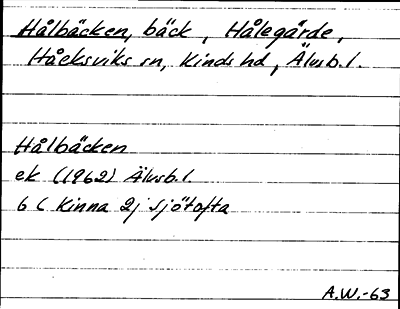 Hålbäcken, bäck, Hålegärde,
Håcksviks sn, Kinds hd, Älvsb.l.
Hålbäcken
ek (1962) Älvsb.l.
6 C Kinna 2j Sjötofta
A.W.-63